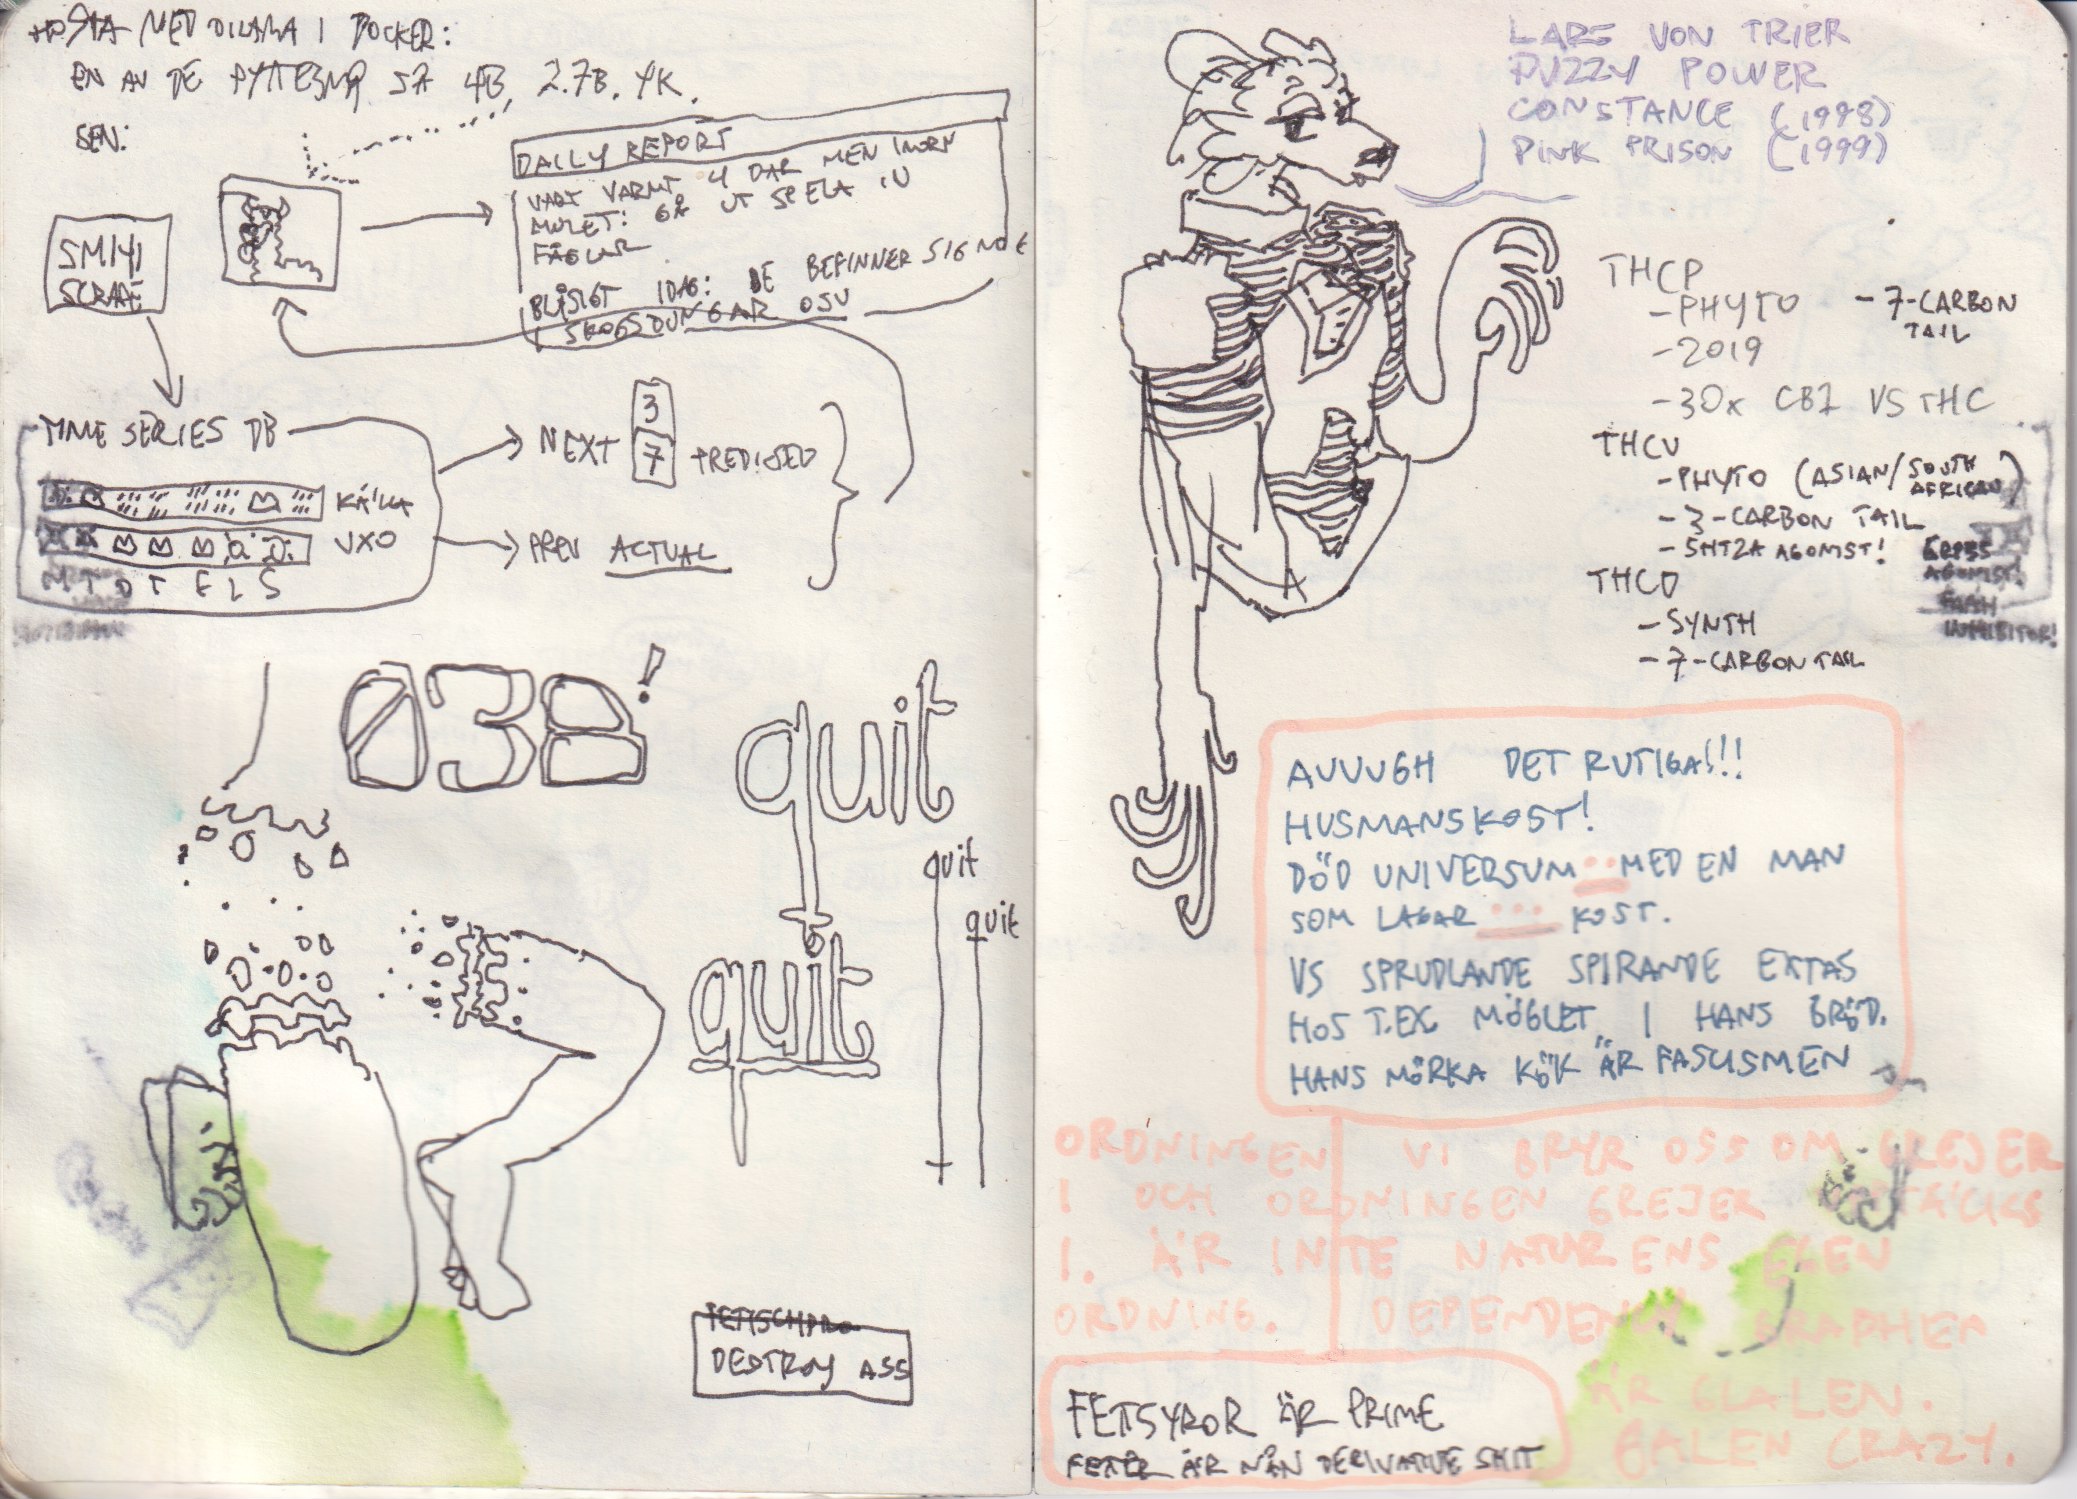 MED OLLAMA I DOCKER:
EN AV DE 4B, 2.7B. 4K.
SEN:
DAILY REPORT
VARIT VARMT 4 DAR MEN IMORN
MULET: GÅ UT SPELA IN
FÅGLAR
BLÅSIGT IDAG: BEFINNER SIG
I SKOGSDUNGAR OSV
SMHI
SCRAPE
TIME SERIES DB
KÄLLA
VXO
M T O T F L S
NEXT 3 7 PREDICTED
PREV ACTUAL
038!
quit
quit
quit
quit
DESTROY ASS
LARS VON TRIER
PUZZY POWER
CONSTANCE (1998)
PINK PRISON (1999)
THCP
- PHYTO - 7-CARBON TAIL
- 2019
- 30x CB1 VS THC
THCV
- PHYTO (ASIAN/SOUTH AFRICAN)
- 3-CARBON TAIL
- 5HT2A AGONIST!
GPR55
AGONIST!
FAAH
INHIBITOR!
THCO
- SYNTH
- 7-CARBON TAIL
AUUUGH DET RUTIGA!!!
HUSMANSKOST!
DÖD UNIVERSUM MED EN MAN
SOM LAGAR KOST.
VS SPRUDLANDE SPIRANDE EXTAS
HOS T.EX. MÖGLET I HANS BRÖD.
HANS MÖRKA KÖK ÄR FASCISMEN
ORDNINGEN VI BRYR OSS OM GREJER
I OCH ORDNINGEN GREJER
I. ÄR INTE NATURENS EGEN
ORDNING. DEPENDENCY GRAPHEN
ÄR GALEN.
GALEN CRAZY.
FETSYROR ÄR PRIME
FETTER ÄR NÅN DERIVATIVE SHIT